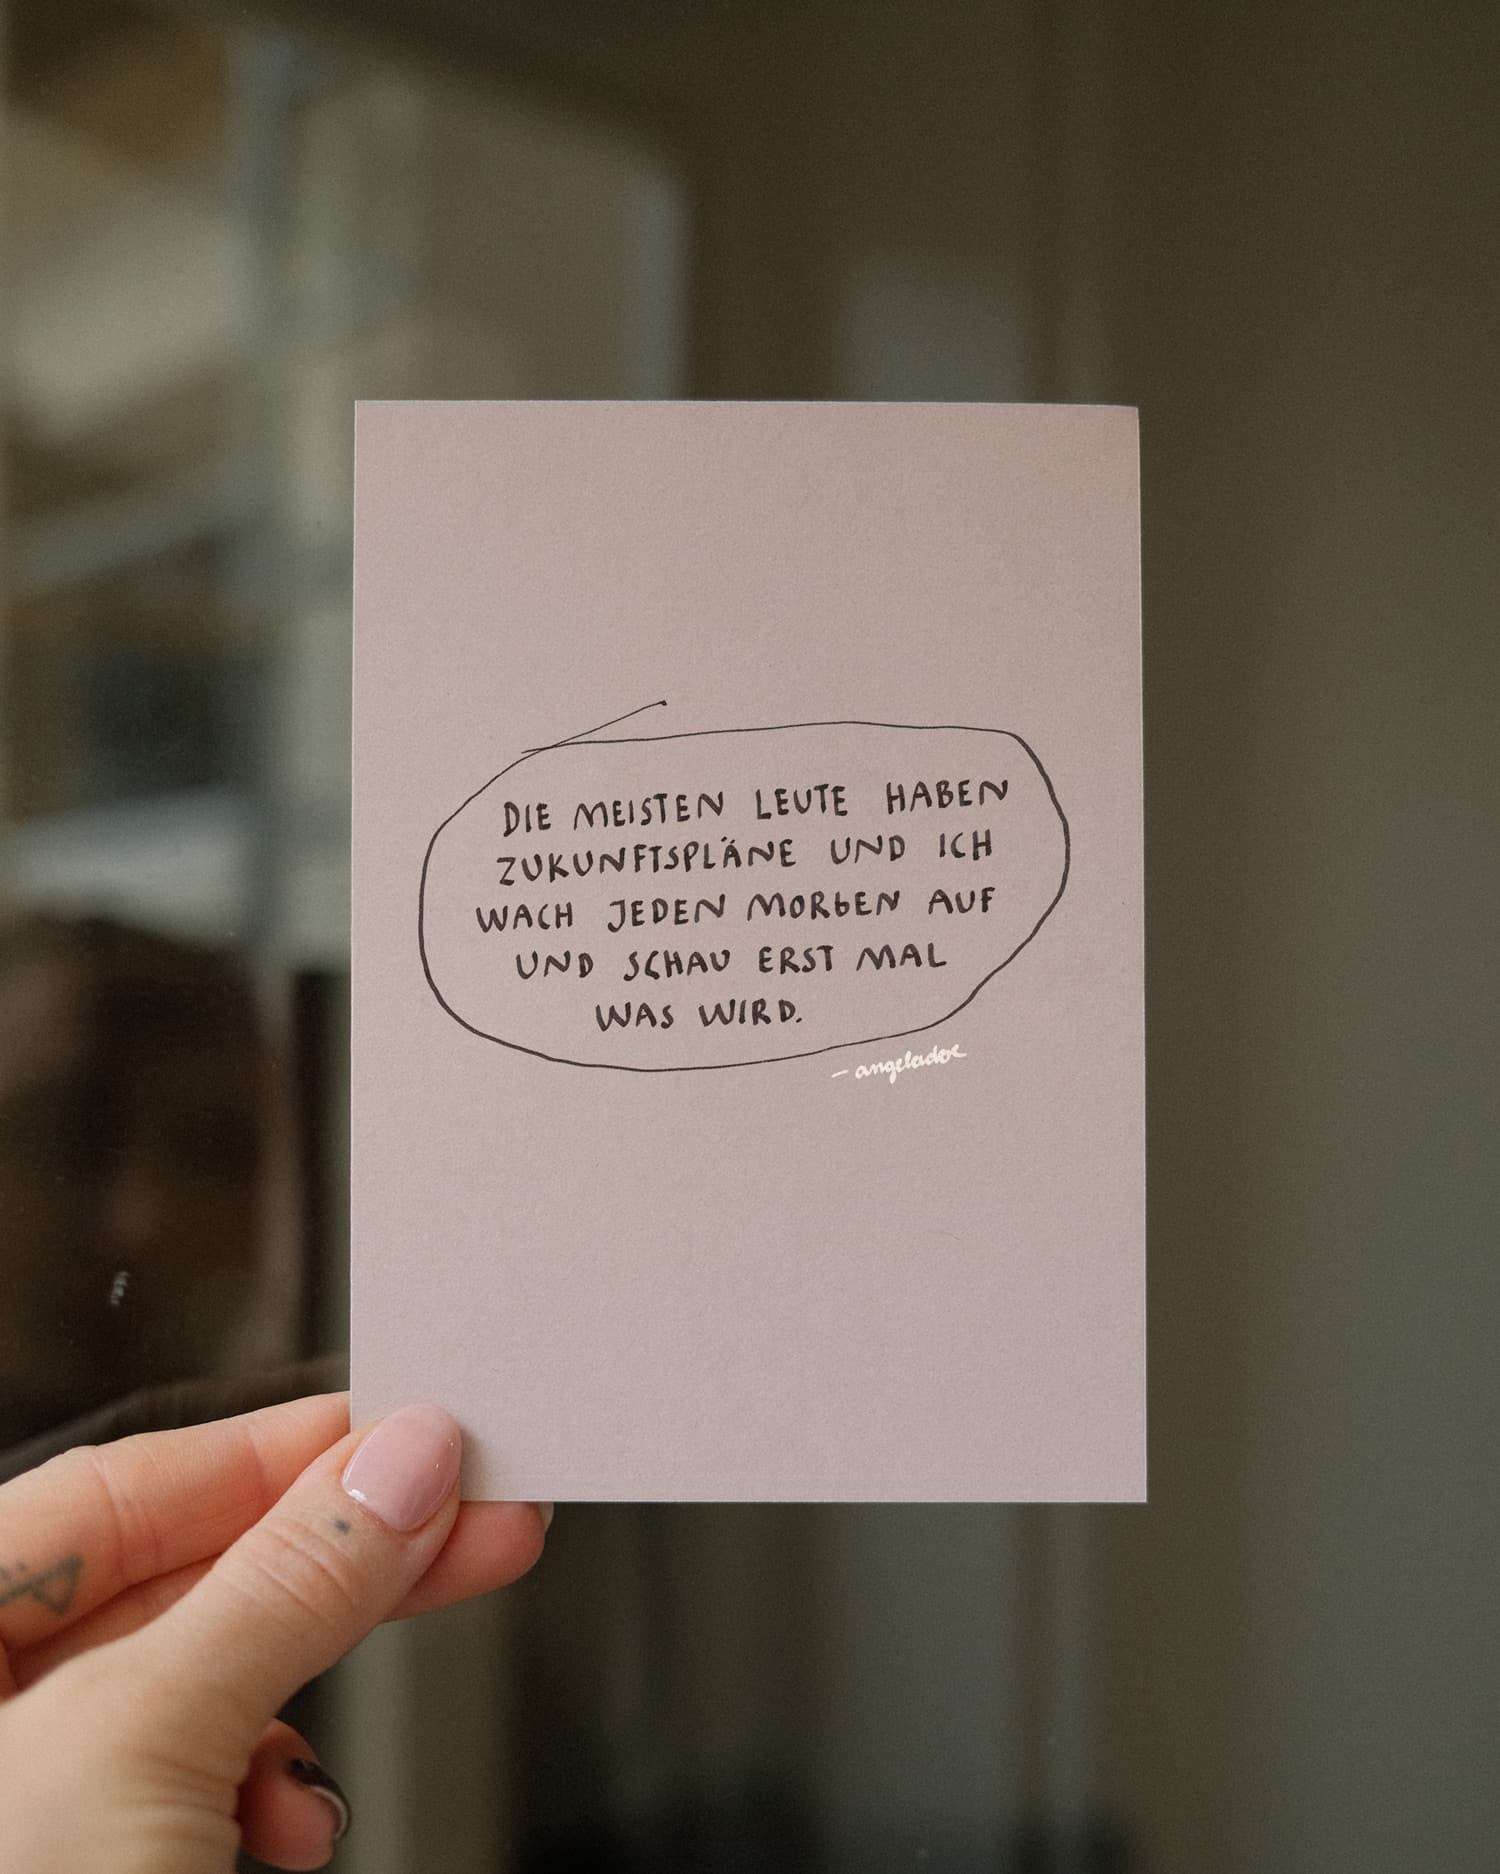 DIE MEISTEN LEUTE HABEN
ZUKUNFTSPLÄNE UND ICH
WACH JEDEN MORGEN AUF
UND SCHAU ERST MAL
WAS WIRD.
– angeladoe